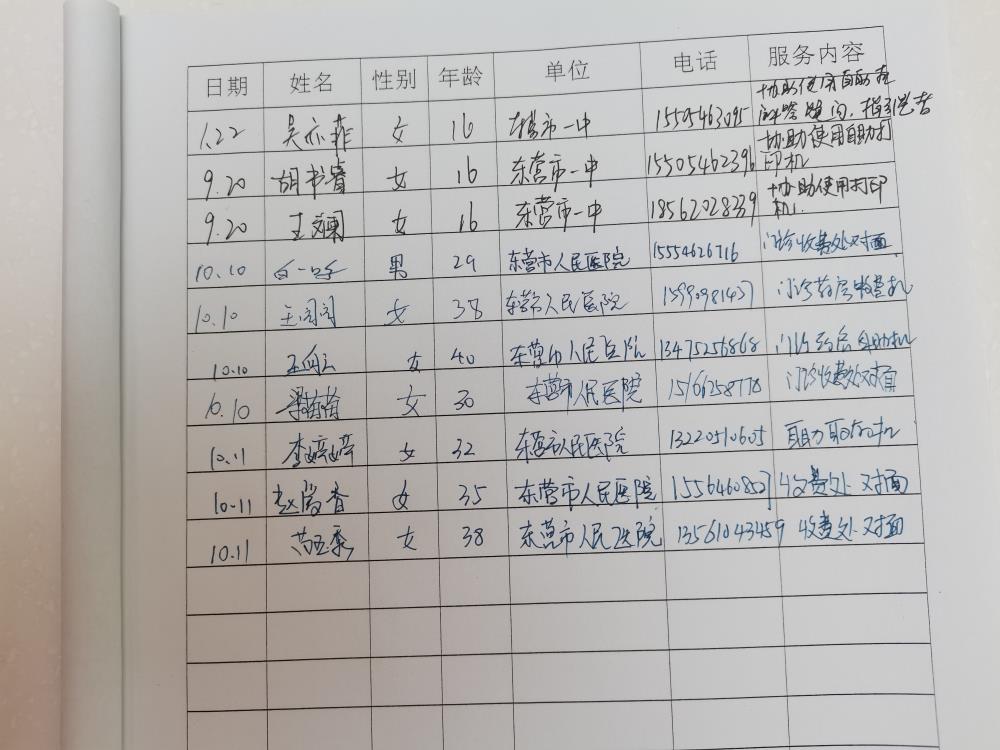 日期 姓名 性别 年龄 单位 电话 服务内容
1.22 吴亦菲 女 16 东营市一中 15505463095 协助使用自助机 解答疑问,指引患者
9.20 胡书睿 女 16 东营市一中 15505462396 协助使用自助打印机
9.20 王斓 女 16 东营市一中 18562028339 协助使用打印机.
10.10 男 29 东营市人民医院 15554626716 门诊收费处对面
10.10 王闰闰 女 38 东营市人民医院 门诊药房收费机
10.10 女 40 东营市人民医院 13475256868 门诊药房自助机
10.10 梁苗苗 女 30 东营市人民医院 15166258778 门诊收费处对面
10.11 李婷婷 女 32 东营市人民医院 13220510605 自助取机
10.11 赵常香 女 35 东营市人民医院 15564608527 收费处对面
10.11 女 38 东营市人民医院 13561043459 收费处对面